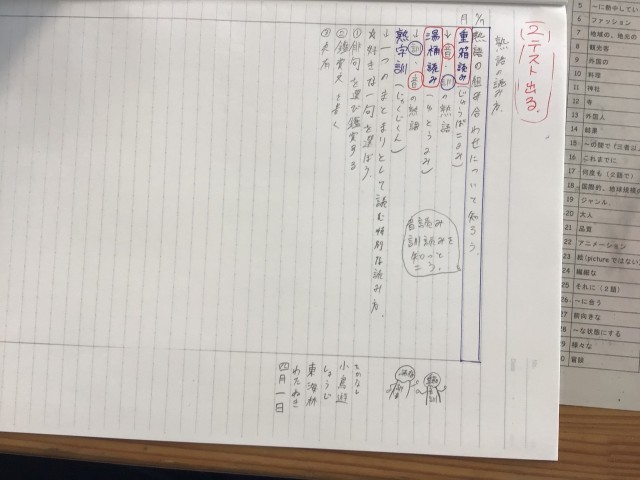 ②テスト出る。
熟語の読み方
熟語の組み合わせについて知ろう。
月
重箱読み(じゅうばこよみ)
↓音・訓の熟語
湯桶読み(ゆとうよみ)
↓訓・音の熟語
熟字訓(じゅくじくん)
↓一つのまとまりとして読む特別な読み方。
好きな一句を選ぼう。
①俳句を選び鑑賞する
②鑑賞文を書く
音読み
訓読みを
知っと
こう。
たかなし
小鳥遊
しょうじ
東海林
わたぬき
四月一日
5 ～に熱中してい
6 ファッション
7 地球の、地元の
8 観光客
9 外国の
10 料理
11 神社
12 寺
13 外国人
14 結果
15 ～の間で(三者以
16 これまでに
17 何度も(2語で)
18 国際的、地球規模の
19 ジャンル
20 大人
21 品質
22 アニメーション
23 絵(pictureではない
24 繊細な
25 それに(2語)
26 ～に会う
27 前向きな
28 ～な状態にする
29 様々な
30 冒険